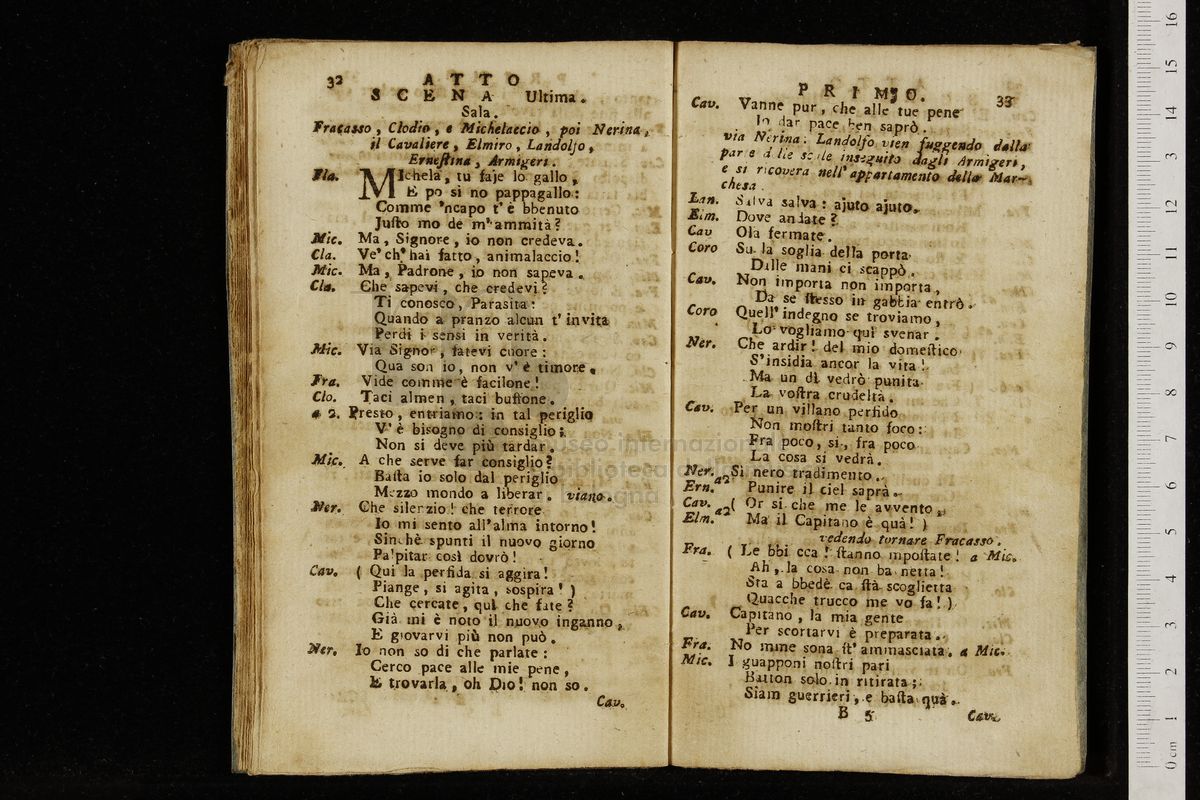 32 ATTO
SCENA Ultima.
Sala.
Fracasso, Clodio, e Michelaccio, poi Nerina,
il Cavaliere, Elmiro, Landolfo,
Erneſtina, Armigeri.
Fla. MIchela, tu faje lo gallo,
E po si no pappagallo:
Comme 'ncapo t' è bbenuto
Juſto mo de m' ammità?
Mic. Ma, Signore, io non credeva.
Cla. Ve' ch' hai fatto, animalaccio!
Mic. Ma, Padrone, io non sapeva.
Cla. Che sapevi, che credevi?
Ti conosco, Parasita:
Quando a pranzo alcun t' invita
Perdi i sensi in verità.
Mic. Via Signor, fatevi cuore:
Qua son io, non v' è timore.
Fra. Vide comme è facilone!
Clo. Taci almen, taci buffone.
a 2. Presto, entriamo: in tal periglio
V' è bisogno di consiglio;
Non si deve più tardar.
Mic. A che serve far consiglio?
Baſta io solo dal periglio
Mezzo mondo a liberar. viano.
Ner. Che silenzio! che terrore
Io mi sento all'alma intorno!
Sinchè spunti il nuovo giorno
Palpitar così dovrò!
Cav. ( Qui la perfida si aggira!
Piange, si agita, sospira! )
Che cercate, qui che fate?
Già mi è noto il nuovo inganno,
E giovarvi più non può.
Ner. Io non so di che parlate:
Cerco pace alle mie pene,
E trovarla, oh Dio! non so.
Cav.
PRIMO. 33
Cav. Vanne pur, che alle tue pene
Io dar pace ben saprò.
via Nerina: Landolfo vien fuggendo dalla
parte delle scale inseguito dagli Armigeri,
e si ricovera nell' appartamento della Mar-
chesa.
Lan. Salva salva: ajuto ajuto.
Elm. Dove andate?
Cav Olà fermate.
Coro Su la soglia della porta
Dalle mani ci scappò.
Cav. Non importa non importa,
Da se ſtesso in gabbia entrò.
Coro Quell' indegno se troviamo,
Lo vogliamo qui svenar.
Ner. Che ardir! del mio domeſtico
S'insidia ancor la vita!
Ma un dì vedrò punita
La voſtra crudeltà.
Cav. Per un villano perfido
Non moſtri tanto foco:
Fra poco, si, fra poco
La cosa si vedrà.
Ner. a2 Si nero tradimento.
Ern. Punire il ciel saprà.
Cav. a2 ( Or si che me le avvento,
Elm. Ma il Capitano è quà! )
vedendo tornare Fracasso.
Fra. ( Le bbi cca! ſtanno mpoſtate! a Mic.
Ah, la cosa non ba netta!
Sta a bbedè ca ſtà scoglietta
Quacche trucco me vo fa! )
Cav. Capitano, la mia gente
Per scortarvi è preparata.
Fra. No mme sona ſt' ammasciata. a Mic.
Mic. I guapponi noſtri pari
Batton solo in ritirata;
Siàm guerrieri, e baſta quà.
B 5 Cav.